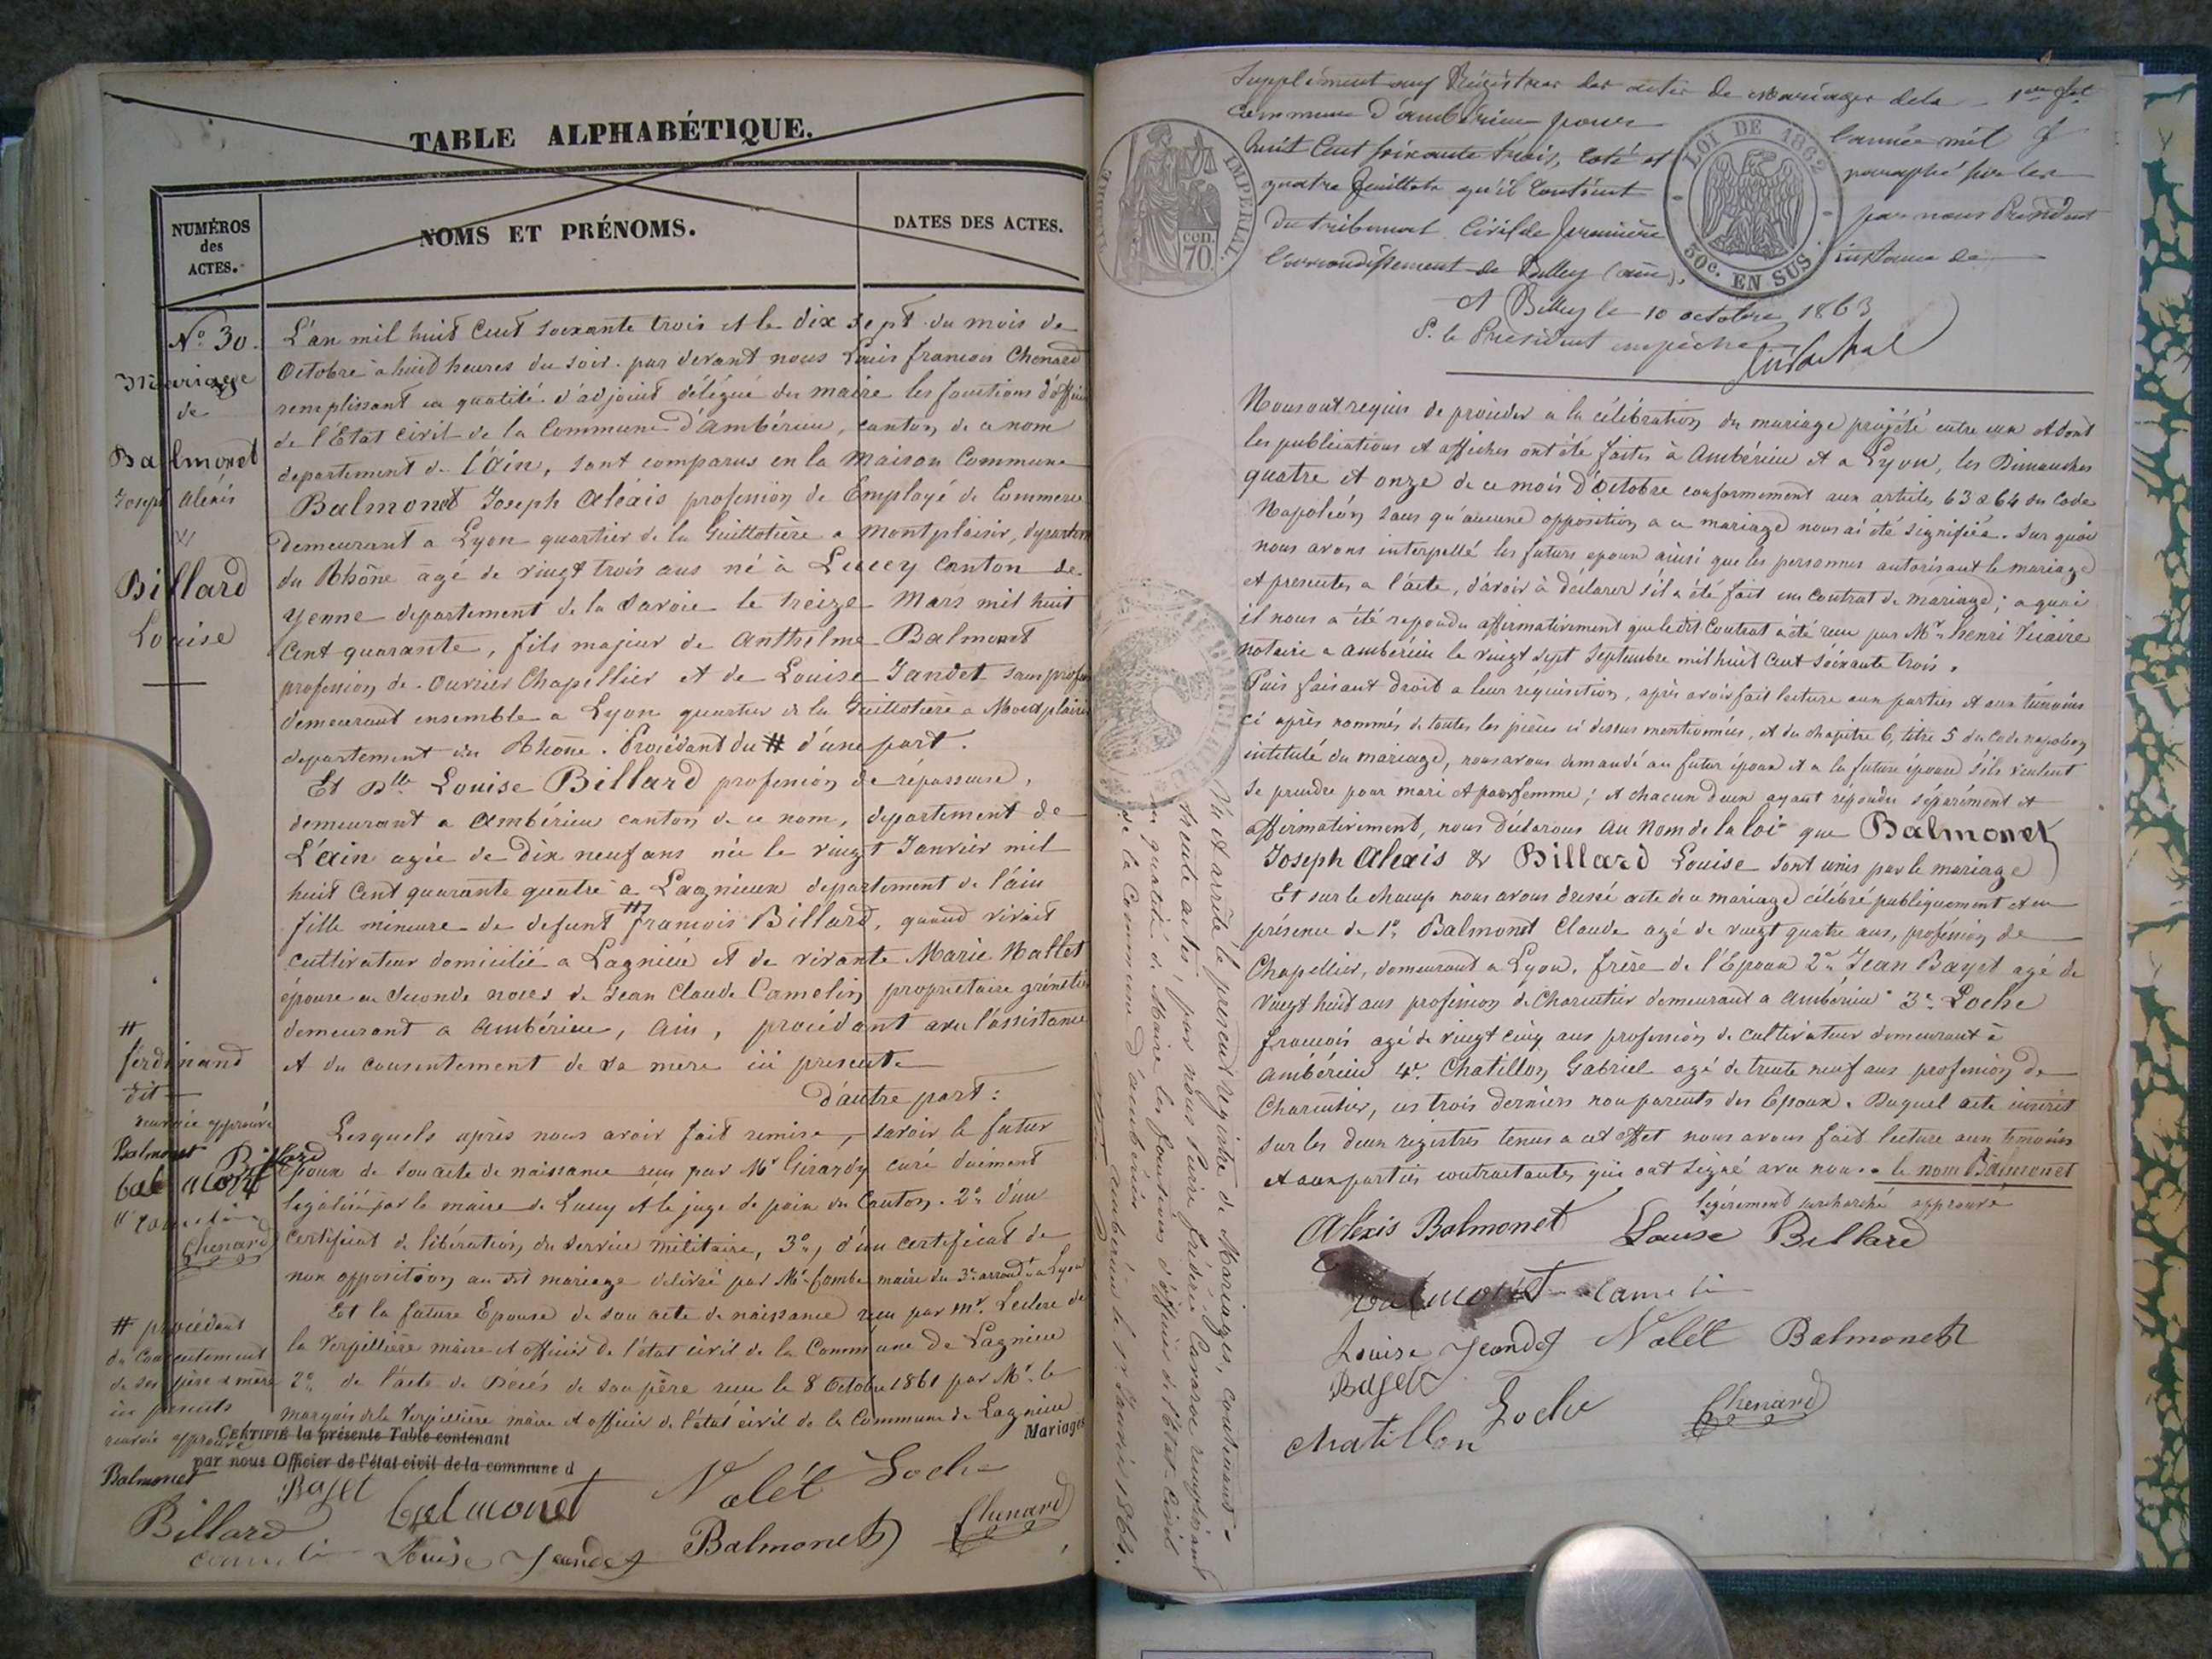 TABLE ALPHABÉTIQUE.
NUMÉROS
des
ACTES.
NOMS ET PRÉNOMS.
DATES DES ACTES.
No 30.
Mariage
de
Balmonet
Joseph Alexis
&
Billard
Louise
L'an mil huit cent soixante trois et le dix sept du mois de
Octobre à huit heures du soir. par devant nous Louis francois Chenard
remplissant en qualité d'adjoint délégué du maire les fonctions d'officier
de l'Etat civil de la Commune d'ambérieu, canton de ce nom
departement de l'ain, sont comparus en la Maison Commune
Balmonet Joseph Alexis profession de Employé de Commerce
demeurant a Lyon quartier de la Guillotière a Montplaisir, departem
du Rhône agé de vingt trois ans né à Lucey Canton de
Yenne departement de la Savoie le treize Mars mil huit
cent quarante, fils majeur de Anthelme Balmonet
profession de ouvrier Chapellier et de Louise Jandet sans profes
demeurant ensemble a Lyon quartier de la Guillotière a Montplaisir
departement du Rhône. Procédant du # d'une part.
Et Dlle Louise Billard profession de repasseuse,
demeurant a Ambérieu canton de ce nom, departement de
L'ain agée de Dix neuf ans née le vingt Janvier mil
huit cent quarante quatre a Lagnieux departement de l'ain
fille mineure de defunt # francois Billard, quand vivait
cultivateur domicilié a Lagnieu et de vivante Marie Nallet
épouse en seconde noces de Jean Claude Camelin propriétaire
demeurant a Ambérieu, ain, procédant avec l'assistance
et du consentement de sa mere ici presente
d'autre part:
#
ferdinand
dit
renvoie approuvé
Balmonet Billard
Balmont
Chenard
Lesquels après nous avoir fait remise, savoir le futur
époux de son acte de naissance reçu par Mr Girardy curé dument
légalisé par le maire de Lucey et le juge de paix du Canton. 2o d'un
certificat de libération du service militaire, 3o, d'un certificat de
non opposition au dit mariage délivré par Mr maire du 3e arrondt a Lyon
Et la future Epouse de son acte de naissance reçu par Mr. Leclerc de
la Verpillière maire et officier de l'état civil de la Commune de Lagnieu
2o de l'acte de Décés de son père reçu le 8 Octobre 1861 par Mr. le
marquis de la Verpillière maire et officier de l'état civil de la Commune de Lagnieu
# procédant
du consentement
de ses père & mère
ici presents
renvoie approuvé
CERTIFIÉ la présente Table contenant
Mariages
par nous Officier de l'état civil de la commune d
Balmonet
Bajet
Balmonet
Nalét
Loche
Billard
Louise Jeandet
Balmonet
Chenard
Supplément aux Régistres des actes de Mariages de la 1er
Commune d'ambérieu pour l'année mil
huit Cent soixante trois, coté et paraphé sur les
quatre feuillets qu'il Contient par nous Président
du tribunal Civil de première instance de
l'arrondissement de Belley (ain).
A Belley le 10 octobre 1863
P. le Président empêché
TIMBRE IMPERIAL.
cen.
70.
LOI DE 1862
50c. EN SUS
Nous ont requis de procéder a la célébration du mariage projété entre eux et dont
les publications et affiches ont été faites à Ambérieu et a Lyon, les Dimanches
quatre et onze de ce mois d'Octobre conformement aux articles 63 & 64 du Code
Napoléon sans qu'aucune opposition a ce mariage nous ai été signifiée. Sur quoi
nous avons interpellé les futurs epoux ainsi que les personnes autorisant le mariage
et presentes a l'acte, d'avoir à déclarer s'il a été fait un Contrat de mariage; a quoi
il nous a été repondu affirmativement que ledit Contrat a été reçu par Mr. henri Vicaire
notaire a Ambérieu le vingt sept Septembre mil huit cent Soixante trois.
Puis faisant droit a leur réquisition, après avoir fait lecture aux parties et aux témoins
ci après nommés de toutes les pièces ci dessus mentionnées, et du chapitre 6, titre 5 du Code Napoléon
intitulé du mariage, nous avons demandé au futur époux et a la future épouse s'ils veulent
se prendre pour mari et pour femme; et chacun d'eux ayant répondu séparément et
affirmativement, nous déclarons au Nom de la loi que Balmonet
Joseph Alexis & Billard Louise sont unis par le mariage
Et sur le champ nous avons dressé acte de ce mariage célébré publiquement et en
présence de 1o Balmonet Claude agé de vingt quatre ans, profession de
Chapellier, demeurant a Lyon, frère de l'Epoux 2o Jean Bayet agé de
vingt huit ans profession de Charcutier demeurant a Ambérieu 3o Loche
francois agé de vingt cinq ans profession de cultivateur demeurant à
Ambérieu 4o Chatillon Gabriel agé de trente neuf ans profession de
Charcutier, ces trois derniers non parents des Epoux. Duquel acte inscrit
sur les deux registres tenus a cet effet nous avons fait lecture aux temoins
et aux parties contractantes qui ont signé avec nous. le nom Balmonet
légérement surchargé approuvé
Alexis Balmonet
Louise Billard
Balmonet
Louise Jeandet
Nalét
Balmonet
Bajet
Loche
Chenard
Chatillon
Vu et arrêté le présent registre de Mariages, contenant
trente actes, par nous
en qualité de Maire les fonctions d'officier de l'Etat-Civil
de la Commune d'ambérieu
Ambérieu le 1er Janvier 1864.